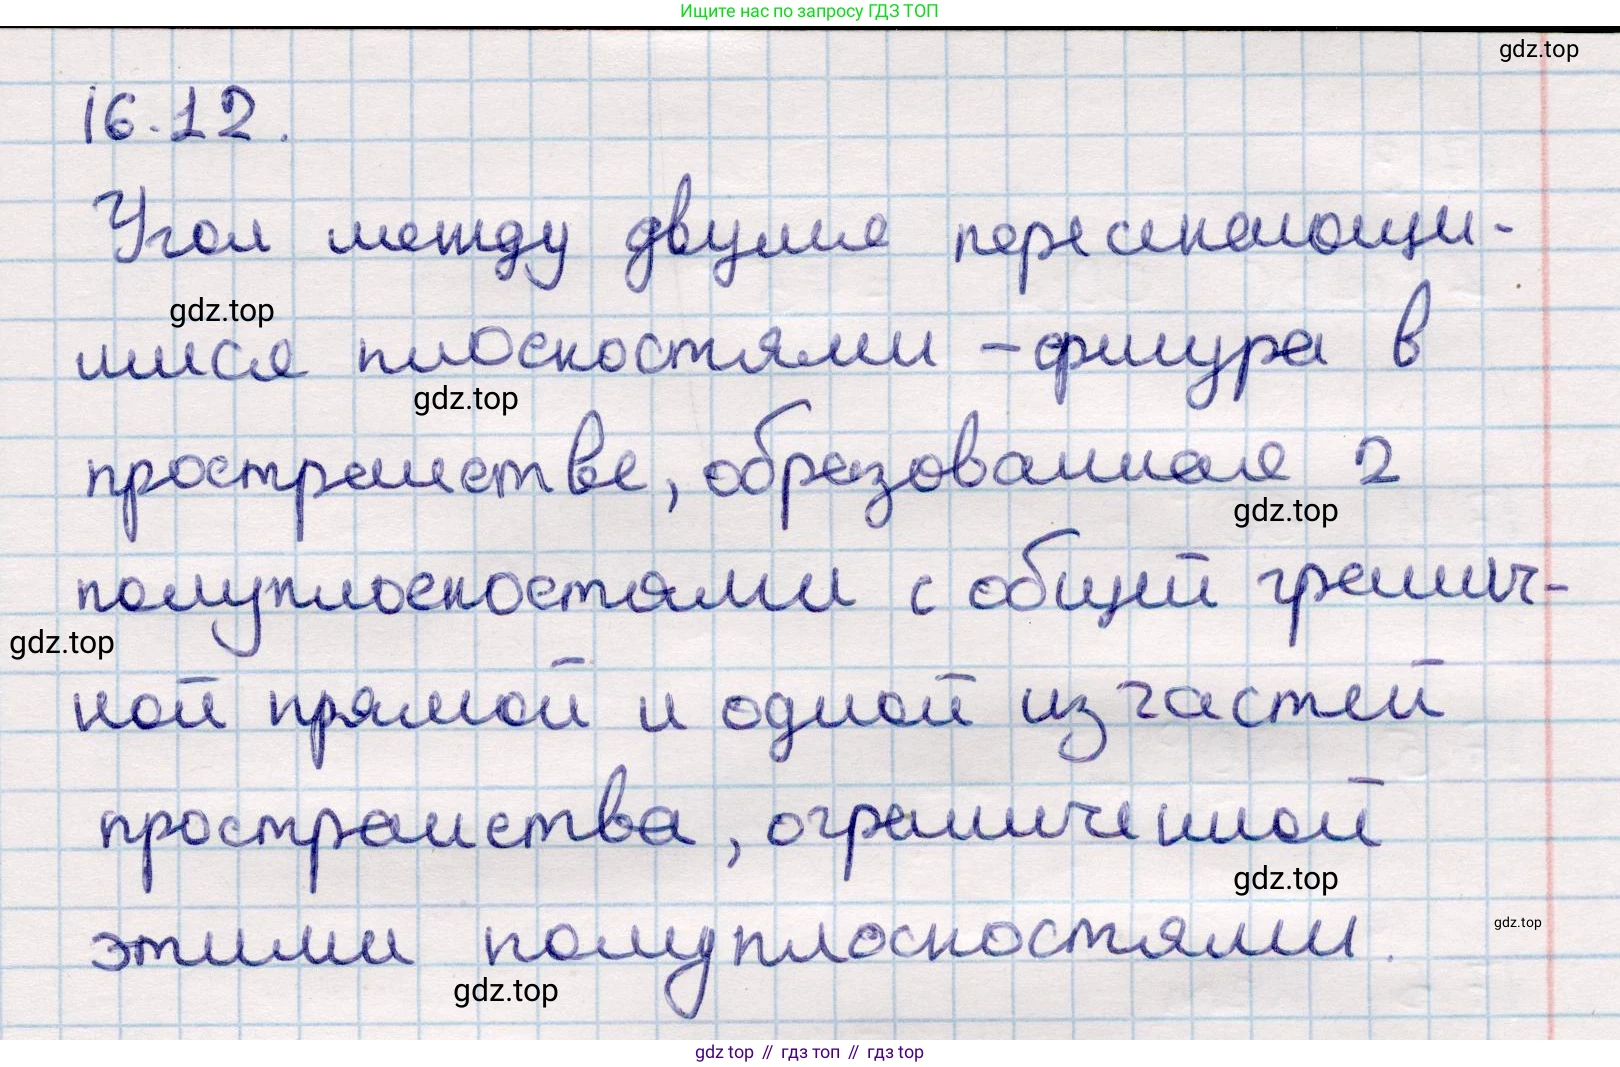 Ищите нас по запросу ГДЗ ТОП
gdz.top
16.12.
Угол между двумя пересекающи-
gdz.top
мися плоскостями - фигура в
gdz.top
пространстве, образованная 2
gdz.top
полуплоскостями с общей гранич-
gdz.top
ной прямой и одной из частей
пространства, ограниченной
gdz.top
gdz.top
этими полуплоскостями.
gdz.top
gdz top // гдз топ // гдз top